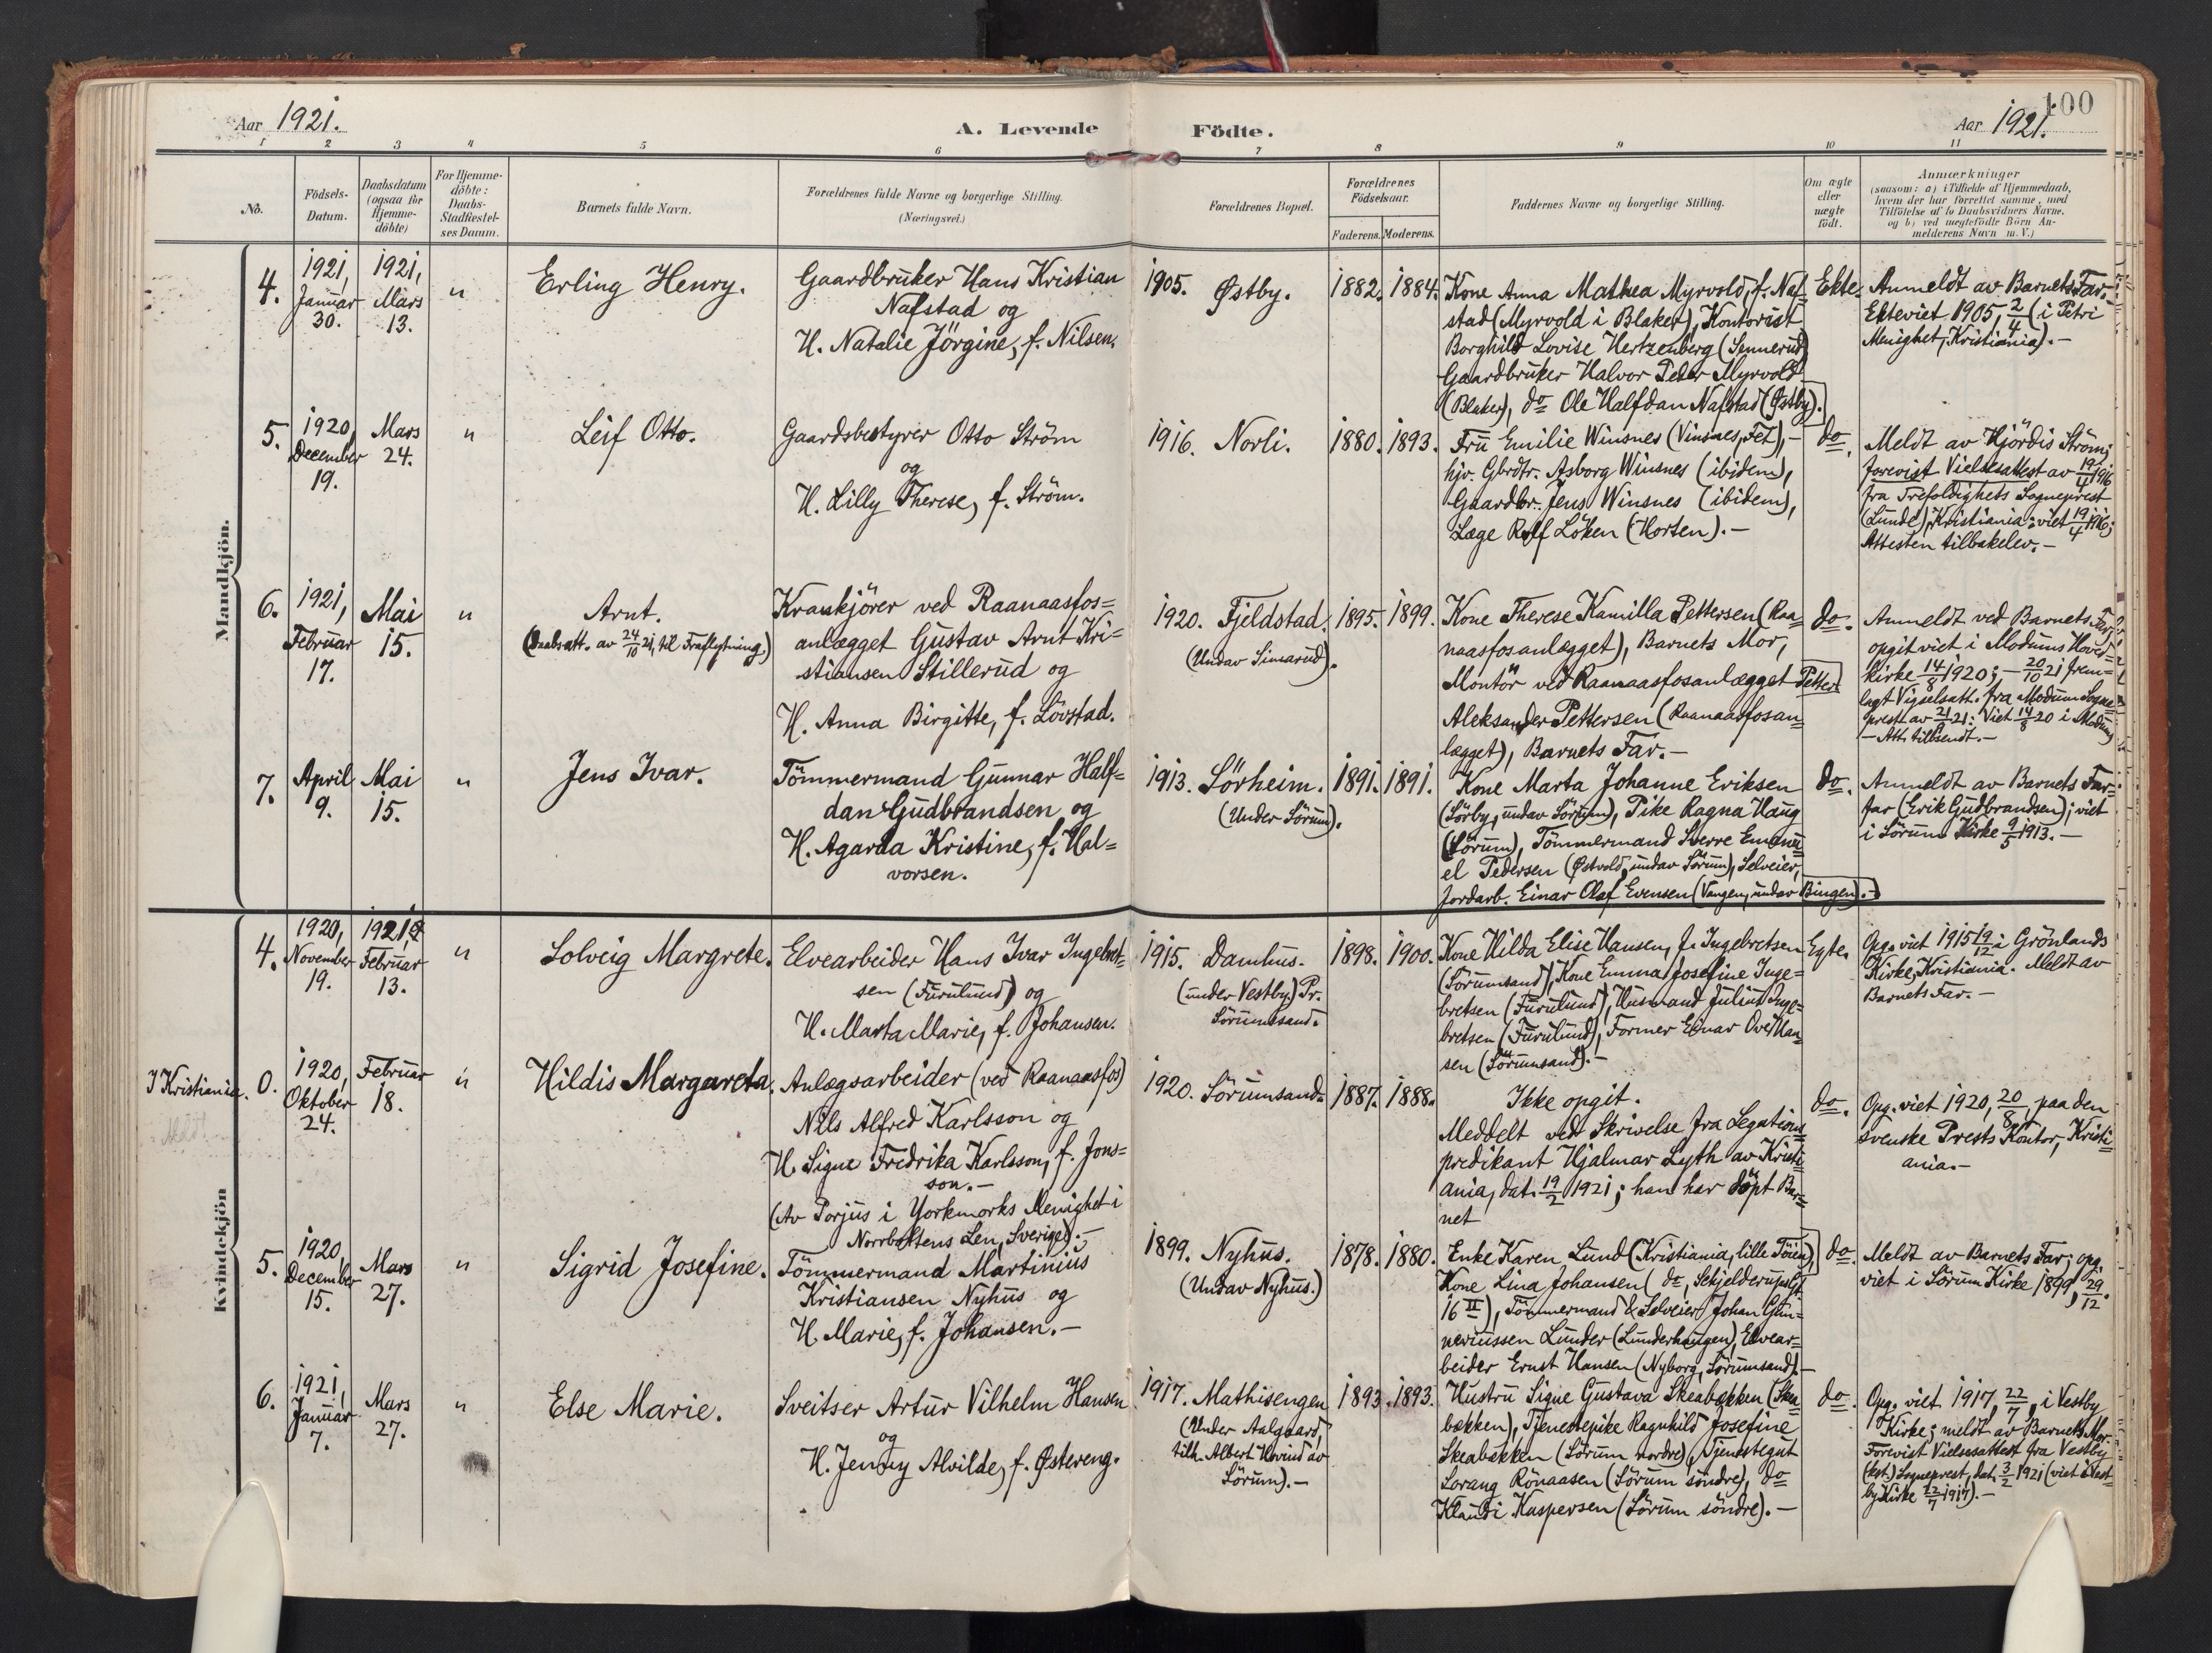 100
Aar 1921.
A. Levende Födte.
Aar 1921.
1 2 3 4 5 6 7 8 9 10 11
No.
Födsels-
Datum.
Daabsdatum
(ogsaa for
Hjemme-
döbte)
For Hjemme-
döbte:
Daabs-
Stadfæstel-
ses Datum.
Barnets fulde Navn.
Forældrenes fulde Navne og borgerlige Stilling.
(Næringsvei.)
Forældrenes Bopæl.
Forældrenes
Födselsaar.
Faderens. Moderens.
Faddernes Navne og borgerlige Stilling.
Om ægte
eller
uægte
födt.
Anmærkninger
(saasom: a) i Tilfælde af Hjemmedaab,
hvem der har forrettet samme, med
Tilföielse af to Daabsvidners Navne.
og b) ved uægtefödte Börn An-
melderens Navn m. V.)
Mandkjön.
4.
1921,
Januar
30.
1921,
Mars
13.
"
Erling Henry.
Gaardbruker Hans Kristian
Nafstad og
H. Natalie Jörgine, f. Nilsen.
1905. Østby.
1882. 1884.
Kone Anna Mathea Myrvold, f. Naf-
stad (Myrvold i Blaker), Kontorist
Borghild Lovise Hertzenberg (Sennerud)
Gaardbruker Halvor Peder Myrvold
(Blaker), do Ole Halfdan Nafstad (Østby).
Ekte.
Anmeldt av Barnets Far.
Ekteviet 1905, 2/4 (i Petri
Menighet, Kristiania). -
5.
1920,
December
19.
Mars
24.
"
Leif Otto.
Gaardsbestyrer Otto Ström
og
H. Lilly Therese, f. Ström.
1916. Norli.
1880. 1893.
Fru Emilie Winsnes (Vinsnes, Fet), -
hjv. Gbrdtr. Asborg Winsnes (ibidem),
Gaardbr. Jens Winsnes (ibidem),
Læge Rolf Löken (Horten). -
do.
Meldt av Hjördis Ström;
forevist Vielsesattest av 19/4 1916
fra Trefoldigheds Sogneprest
(Lunde), Kristiania: viet 19/4 1916;
Attesten tilbakelev. -
6.
1921,
Februar
17.
Mai
15.
"
Arnt.
(Daabsatt. av 24/10 21, til Fraflytning.)
Krankjörer ved Raanaasfos=
anlægget Gustav Arnt Kri-
stiansen Stillerud og
H. Anna Birgitte, f. Lövstad.
1920. Fjeldstad.
(Undav Simarud).
1895. 1899.
Kone Therese Kamilla Pettersen (Raa-
naasfosanlægget), Barnets Mor,
Montör ved Raanaasfosanlægget Petter
Aleksander Pettersen (Raanaasfosan-
lægget), Barnets Far. -
do.
Anmeldt ved Barnets Far;
opgit viet i Modums Hoved-
kirke 14/8 1920; - 20/10 21 frem-
lagt Vigselsatt. fra Modum Sogne-
prest av 21/ 21: Viet 14/8 20 i Modum
- Att. tilsendt. -
7.
April
9.
Mai
15.
"
Jens Ivar.
Tömmermand Gunnar Half-
dan Gudbrandsen og
H. Agarda Kristine, f. Hal=
vorsen.
1913. Sörheim.
(Under Sörum).
1891. 1891.
Kone Marta Johanne Eriksen
(Sörby, undav Sörum), Pike Ragna Haug
(Sörum), Tömmermand Sverre Emanu-
el Pedersen (Østvold, undav Sörum), Selveier,
Jordarb. Einar Olaf Evensen (Vangen, undav Bingen). -
do.
Anmeldt av Barnets Far-
far (Erik Gudbrandsen); viet
i Sörum Kirke 9/5 1913. -
Kvindekjön
4.
1920,
November
19.
1921,
Februar
13.
"
Solveig Margrete.
Elvearbeider Hans Ivar Ingebret-
sen (Furulund) og
H. Marta Marie, f. Johansen.
1915. Damhus.
(under Vestby) Pr.
Sörumsand.
1898. 1900.
Kone Hilda Elise Hansen, f. Ingebretsen
(Sörumsand), Kone Emma Josefine Inge-
bretsen (Furulund), Husmand Julius Inge-
bretsen (Furulund), Former Einar Ove Han-
sen (Sörumsand). -
Egte.
Opg. viet 1915 19/12 i Grönlands
Kirke, Kristiania. Meldt av
Barnets Far. -
I Kristiania.
0.
1920,
Oktober
24.
Februar
18.
"
Hildis Margareta.
Anlægsarbeider (ved Raanaasfos)
Nils Alfred Karlsson og
H. Signe Fredrika Karlsson, f. Jons=
son. -
(Av Porjus i Yorkmorks Menighet i
Norrbottens Len, Sverige). -
1920. Sörumsand
1887. 1888.
Ikke opgit.
Meddelt ved Skrivelse fra Legations-
predikant Hjalmar Lyth av Kristi-
ania, dat. 19/2 1921; han har döpt Bar-
net
do.
Opg. viet 1920, 20/8, paa den
svenske Prests Kontor, Kristi-
ania. -
5.
1920,
December
15.
Mars
27.
"
Sigrid Josefine.
Tömmermand Martinius
Kristiansen Nyhus og
H. Marie, f. Johansen. -
1899. Nyhus.
(Undav Nyhus.)
1878. 1880.
Enke Karen Lund (Kristiania, lille Töien),
Kone Lina Johansen (do, Schjelderupsgt
16 II), Tömmermand & Selveier Johan Gun-
neriussen Lunder (Lunderhaugen), Elvear-
beider Ernst Hansen (Nyborg, Sörumsand). -
do.
Meldt av Barnets Far; opg.
viet i Sörum Kirke 1899, 29/12.
6.
1921,
Januar
7.
Mars
27.
"
Else Marie.
Sveitser Artur Vilhelm Hansen
og
H. Jenny Alvilde, f. Østereng.
1917. Mathisengen
(Under Aalgaard,
tilh. Albert Hovind av
Sörum). -
1893. 1893.
Hustru Signe Gustava Skeabekken (Skea-
bækken), Tjenestepike Ragnhild Josefine
Skeabækken (Sörum nordre), Tjenestegut
Lorang Rönaasen (Sörum söndre), do
Klaudi Kaspersen (Sörum söndre). -
do.
Opg. viet 1917, 22/7, i Vestby
Kirke; meldt av Barnets Mor.
Forevist Vielsesattest fra Vestby
(kst.) Sogneprest, dat. 3/2 1921 (viet i Vest-
by Kirke 22/7 1917). -